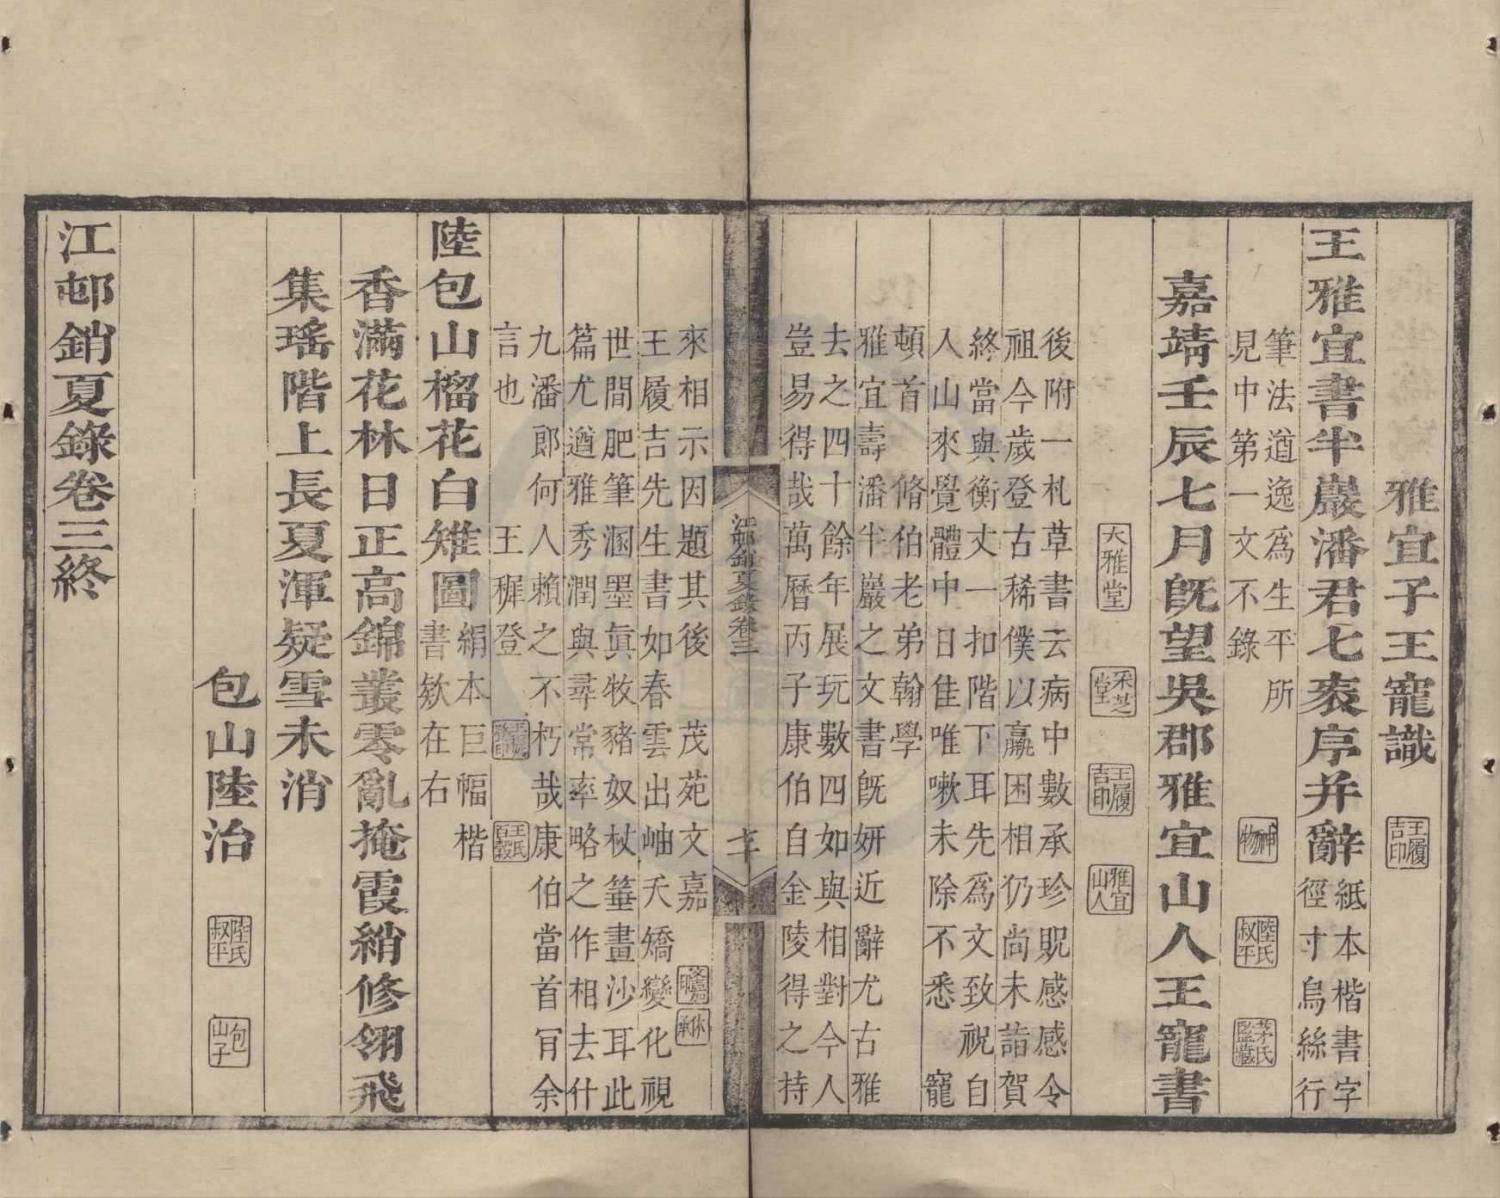 雅宜子王寵識 王履吉印
王雅宜書半巖潘君七袠序并辭 紙本楷書字
徑寸烏絲行
筆法道逸爲生平所
見中第一文不錄 神物 陸氏叔平 茅氏
嘉靖壬辰七月旣望吳郡雅宜山人王寵書
大雅堂 采芝堂 王履吉印 雅宜山人
後附一札草書云病中數承珍貺感感令
祖今歲登古稀僕以羸困相仍尚未詣賀
終當與衡丈一扣階下耳先爲文致祝自
入山來覺體中日佳唯嗽未除不悉 寵
頓首 脩伯老弟翰學
雅宜壽潘半巖之文書旣妍近辭尤古雅
去之四十餘年展玩數四如與相對今人
豈易得哉萬曆丙子康伯自金陵得之持
江邨銷夏錄卷三
來相示因題其後 茂苑文嘉 文嘉印 休承
王履吉先生書如春雲出岫夭矯變化視
世間肥筆溷墨眞牧豬奴杖箠畫沙耳此
篇尤遒雅秀潤與尋常率略之作相去什
九潘郎何人賴之不朽哉康伯當首肎余
言也 王穉登 王氏百穀
陸包山榴花白雉圖 絹本巨幅楷
書欵在右
香滿花林日正高錦叢零亂掩霞綃修翎飛
集瑤階上長夏渾疑雪未消
包山陸治 陸氏叔平 包山子
江邨銷夏錄卷三終